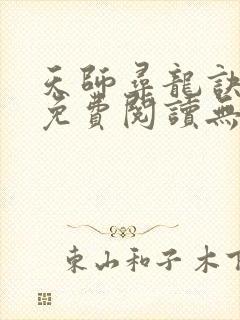 天師尋龍訣
免費閱讀無
東山和子木下